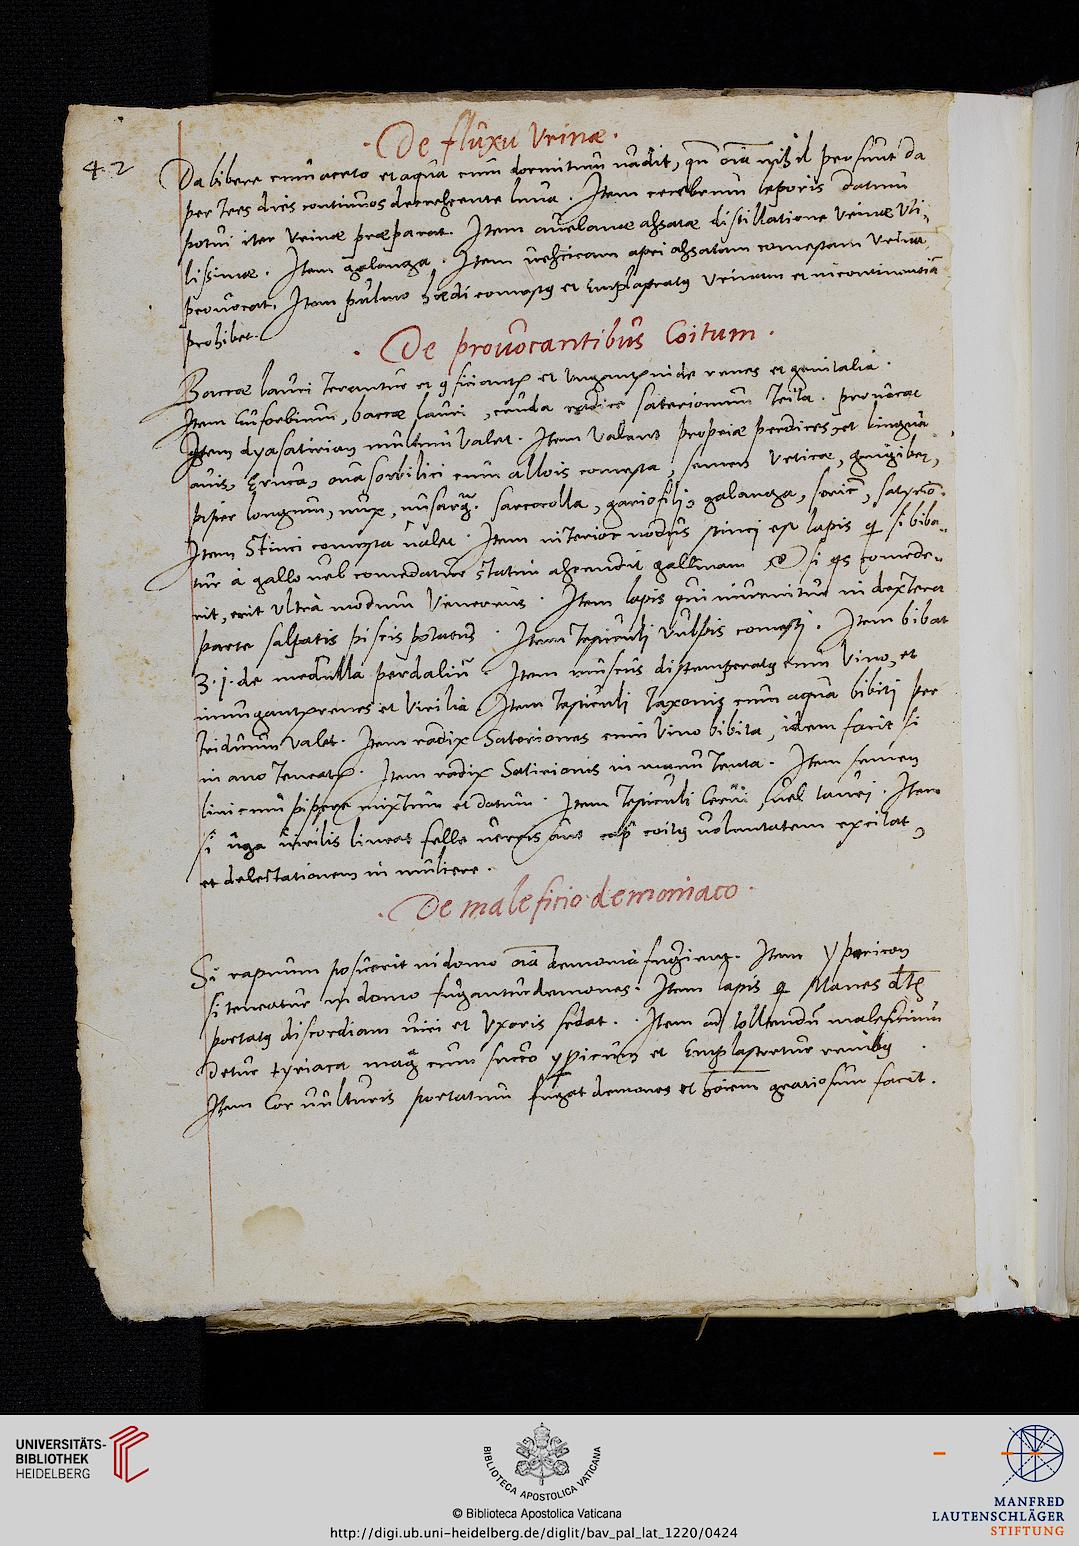 · De fluxu Vrinæ ·
42
Da bibere cum aceto et aqua cum dormitum vadit, qñ oĩa nihil prosunt da
per tres dies continuos decrescente luna. Item cerebrum leporis datum
potui iter vrinæ præparat. Item auelanæ assatæ distillatione vrinæ vti-
lissimæ. Item galanga. Item vessicam apri assatam comestam vrinã
prouocat. Item pulmo hædi comest9 et emplastrat9 vrinam et incontinentiã
prohibet.
· De prouocantibus Coitum ·
Baccæ lauri terantur et 9ficiant et vngant inde renes et genitalia.
Item Euforbium, baccæ lauri, eruda radice saterionum trita. prouocat
Item dyasatirion multum valet. Item valent propriæ perdices, et lingua
auis, Eruca, oua sorbilici cum allois comesta, semen Vrticæ, gingiber,
piper longum, nux, sarcocolla, gariofili, galanga, satyriõ.
Item Stinci comesta valet. Item interior nodus stinci est lapis q si biba-
tur à gallo vel comedatur statim ascendit gallinam si qs comede-
rit, erit vltra modum Venereus. Item lapis qui inuenitur in dextera
parte salpatis piscis potatus. Item testiculi vulpis comesti. Item bibat
Ʒ.j. de medulla perdaliũ. Item muscus distemperat9 cum vino, et
inungant renes et virilia Item testiculi taxonis cum aqua bibiti per
triduum valet. Item radix Satoriones cum vino bibita, idem facit si
in ano teneat. Item radix Satirionis in manu tenta. Item semen
lini cum pipere mixtum et datum. Item testiculi Cerui, vel tauri. Item
si uga virilis lineat felle verris coit9 voluntatem excitat,
et delectationem in muliere.
· De maleficio demoniaco ·
Si rapnum posuerit in domo oĩa demonia fugient. Item Ypericon
si teneatur in domo fugantur demones. Item lapis q Manes
portat9 discordiam viri et vxoris sedat. Item ad tollendũ maleficium
Detur tyriaca mag cum succo et Emplastretur renib9
Item Cor vulturis portatum fugat demones et hoĩem gratiosum facit.
UNIVERSITÄTS-
BIBLIOTHEK
HEIDELBERG
BIBLIOTECA APOSTOLICA VATICANA
© Biblioteca Apostolica Vaticana
http://digi.ub.uni-heidelberg.de/diglit/bav_pal_lat_1220/0424
MANFRED
LAUTENSCHLÄGER
STIFTUNG